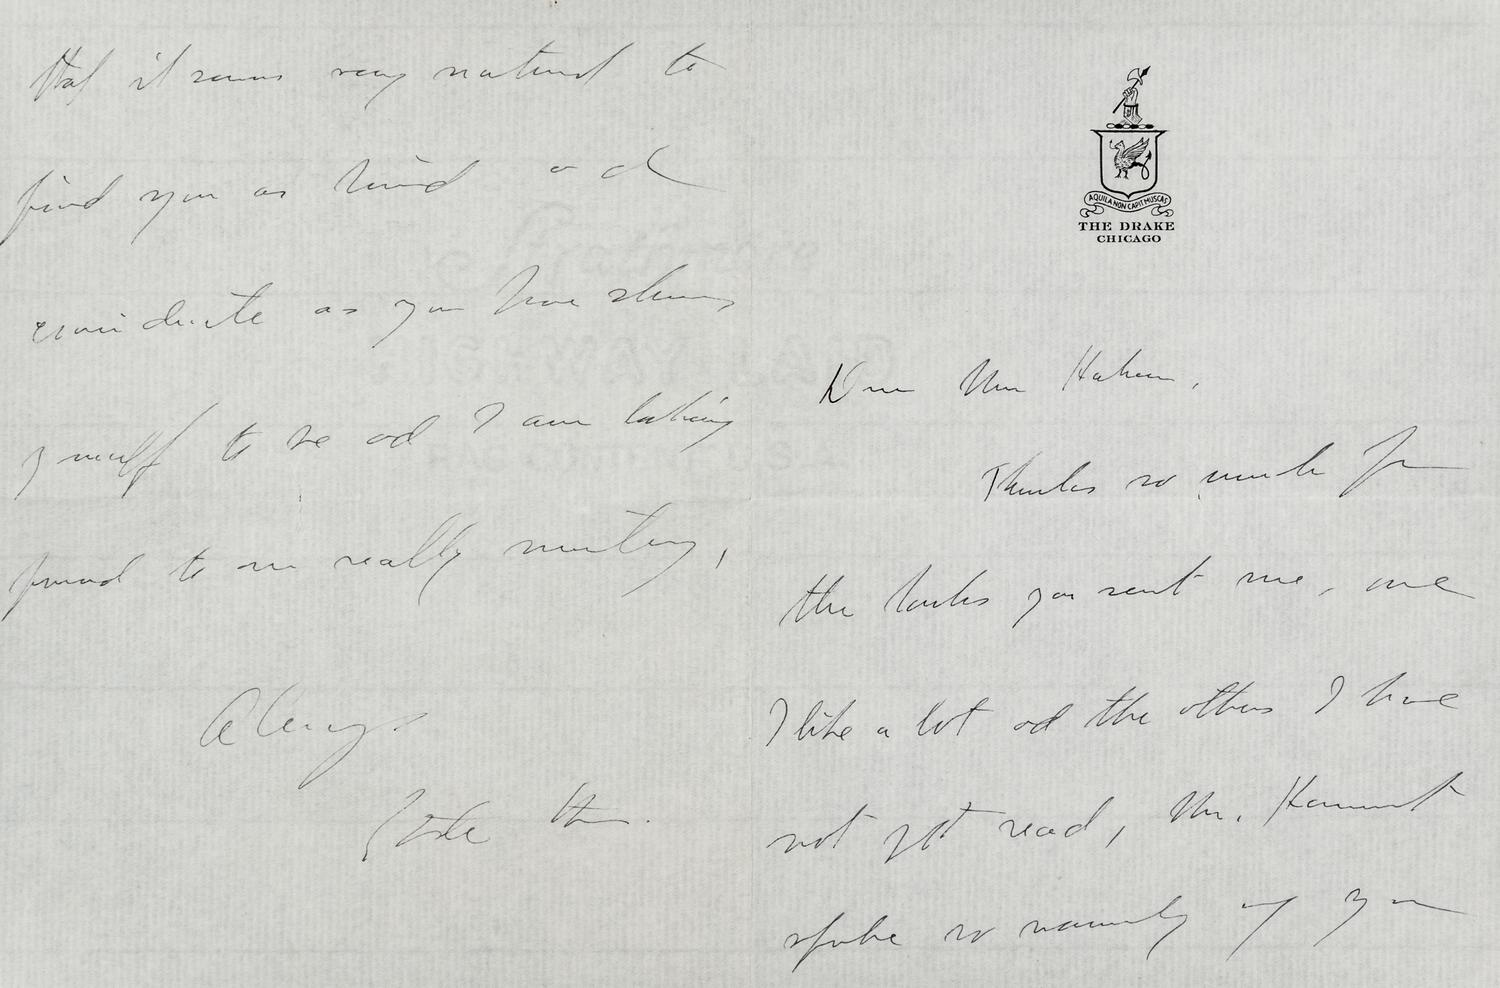 AQUILA NON CAPIT MUSCAS
THE DRAKE
CHICAGO
Dear Mr. Haheen,
Thanks so much for
the books you sent me, one
I like a lot and the others I have
not yet read, Mr.
spoke so warmly of you
that it seems very natural to
find you as kind and
considerate as you have shown
yourself to be and I am looking
forward to our really meeting,
Always